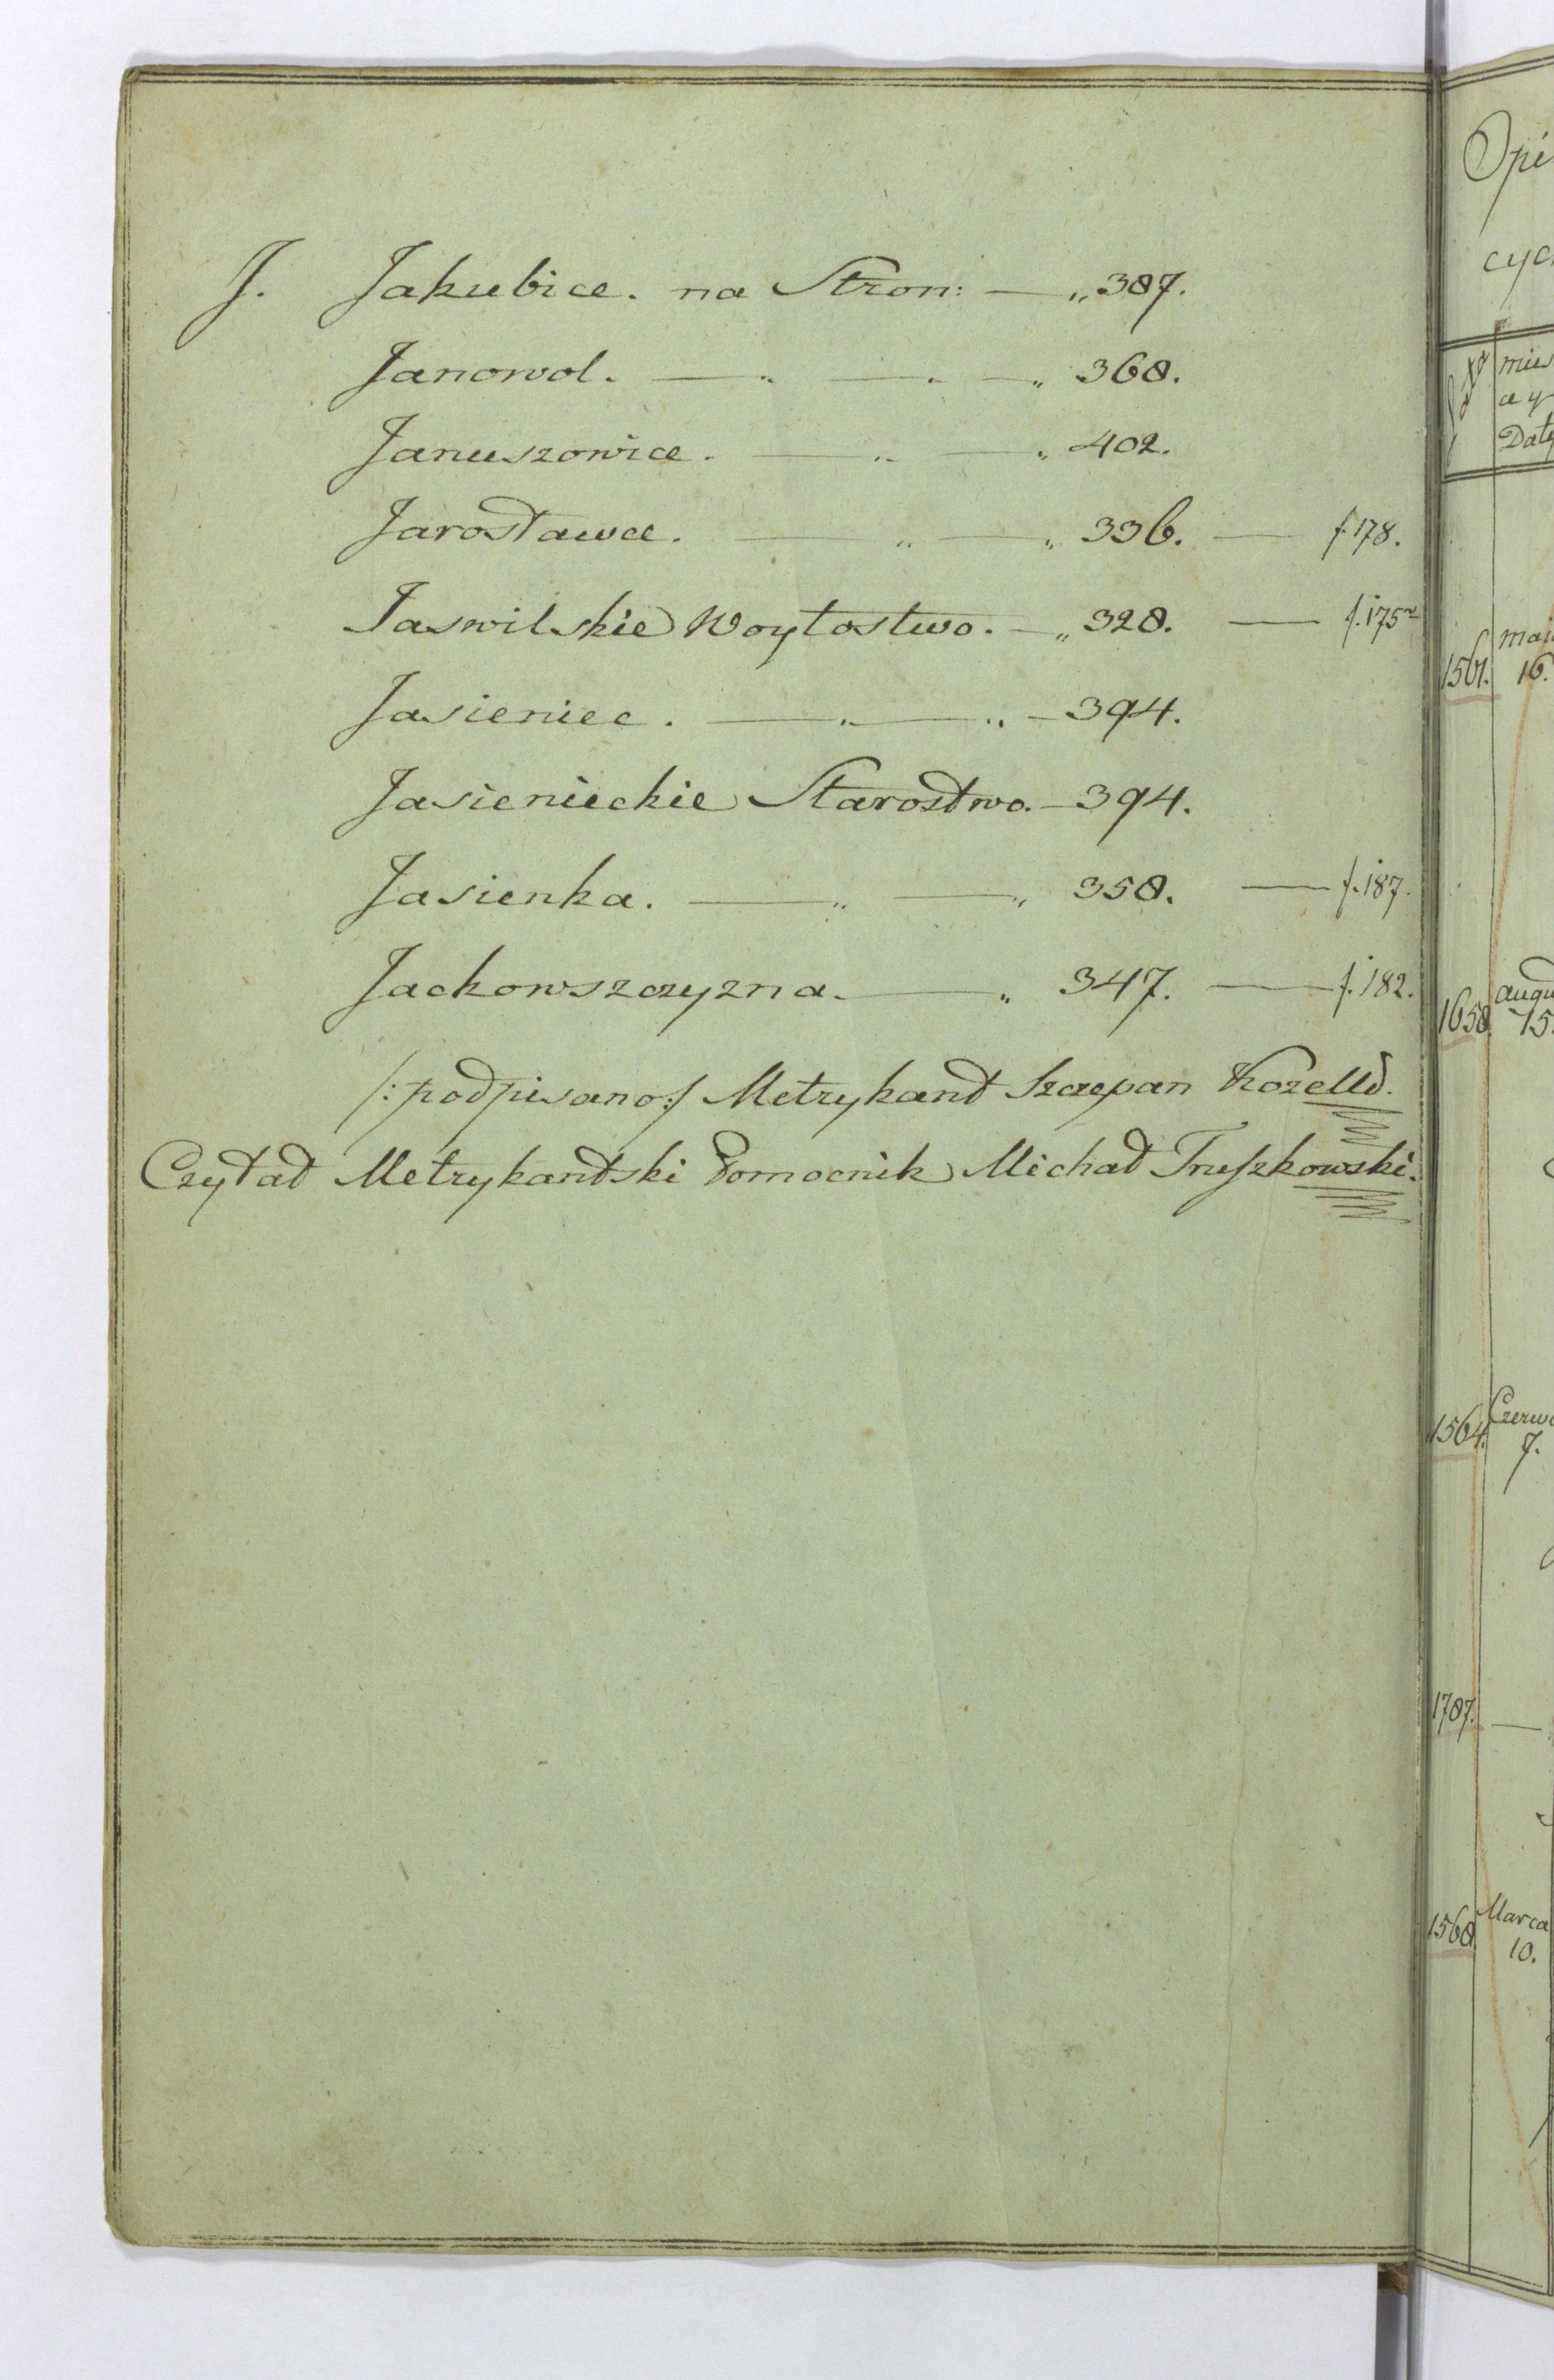 J. Jakubice. na Stron: — „ 387.
Janowol. — „ — „ — „ 368.
Januszowice. — „ — „ 402.
Jarosławce. — „ — „ 336. — f. 178.
Jaswilskie Woytostwo. — „ 328. — f. 175
Jasieniec. — „ — „ — 394.
Jasienieckie Starostwo. — 394.
Jasienka. — „ — „ 358. — f. 187.
Jackowszczyzna. — „ 347. — f. 182.
/: podpisano :/ Metrykant Szczepan Kozełło.
Czytał Metrykantski Pomocnik Michał Truszkowski.
Opi
cyc
mies
a y
Daty
maj
1561. 16.
augu
1658. 15.
Czerwc
1564. 7.
1787. —
Marca
1568. 10.